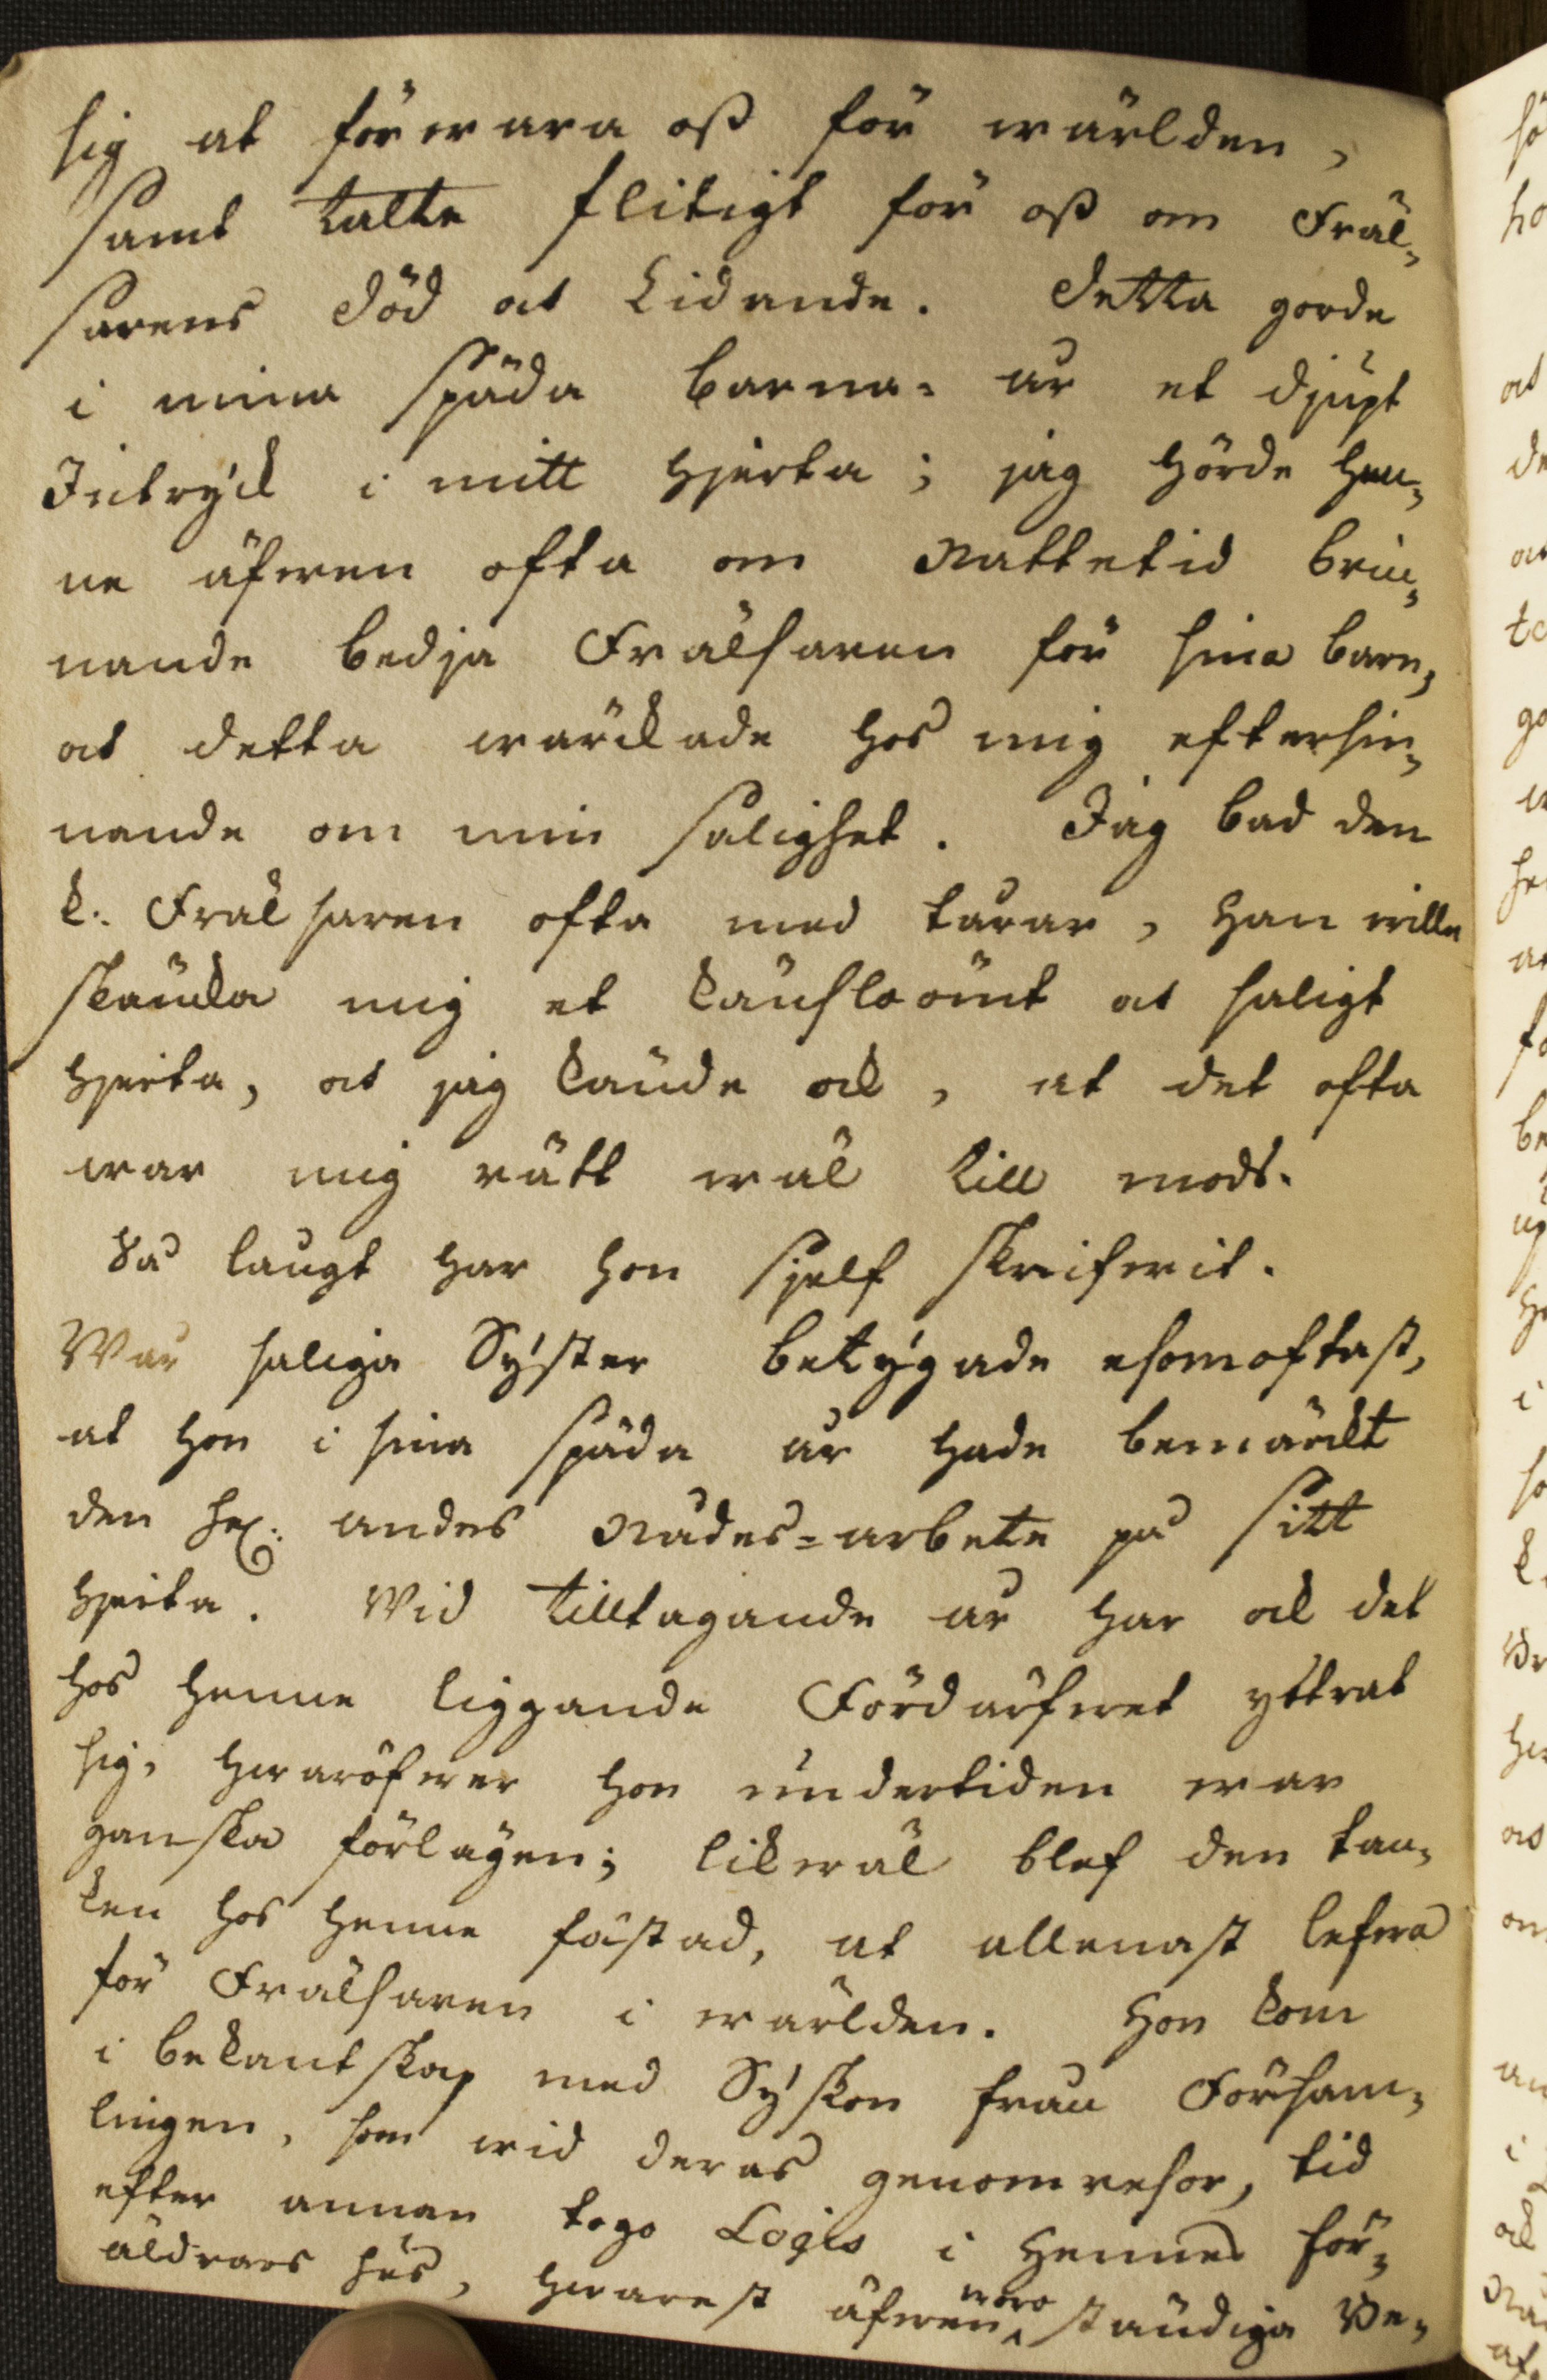 sig at förewara oß för wärlden,
samt talte flitigt för oß om Fräl-
sarens död ock Lidande. Detta gorde
i mina späda barna-år et djupt
Intryck i mitt hjerta; jag hörde hen-
ne äfwen ofta om Nattetid brin-
nande bedja Frälsaren för sina barn,
ock detta wärckade hos mig eftersin-
nande om min salighet. Jag bad den
k: Frälsaren ofta med tårar, han wille
skäncka mig et känsloömt ock saligt
hjerta, ock jag kände ock, at det ofta
war mig rätt wäl till mods.
Så långt har hon sjelf skrifwit.
Wår saliga Syster betygade esomoftast,
at hon i sina späda år hade bemärckt
den hel: andes Nådes-arbete på sitt
hjerta. Wid tilltagande år har ock det
hos henne liggande Fördärfwet yttrat
sig, hwaröfwer hon undertiden war
ganska förlägen; likwäl blef den tan-
ken hos henne fästad, at allenast lefwa
för Frälsaren i wärlden. Hon kom
i bekantskap med Syskon från Försam-
lingen, som wid deras genomresor, tid
efter annan togo Logis i Hennes för-
äldrars hus, hwarest äfwen woro ständiga Be-